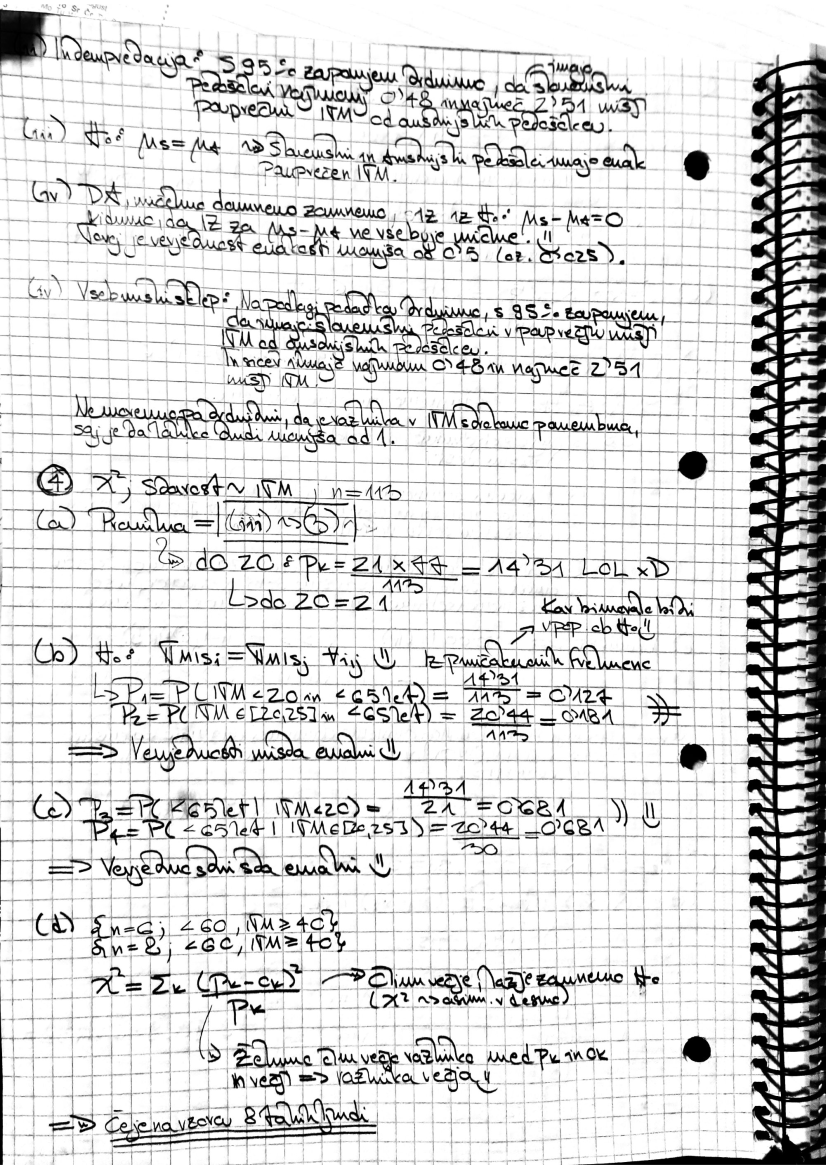 Interpretacija: S 95% zaupanjem trdimo, da slovenski imajo
pešaki najmanj 0'48 in največ 2'51 višji
povprečni ITM od avstrijskih
(iii) H₀: μs = μA ⇝ Slovenski in Avstrijski imajo enak
povprečen ITM.
(iv) DA, ničelno domnevo zavrnemo, iz H₀: μs - μA = 0
vidimo, da IZ za μs - μA ne vsebuje ničle! Ü
Torej je verjetnost enakosti manjša od 0'5 (oz. 0'025).
(iv) Vsebinski sklep: Na podlagi podatka trdimo, s 95% zaupanjem,
da imajo slovenski v povprečju višji
ITM od avstrijskih
In sicer imajo najmanj 0'48 in največ 2'51
višji ITM.
Ne moremo pa trditi, da je razlika v ITM strokovno pomembna,
saj je ta lahko tudi manjša od 1.
④ χ²; Starost ~ ITM, n=113
(a) = (iii) ⇝ (3)
do 20: pₖ = 21 × 77 / 113 = 14'31 LOL xD
↳ do 20 = 21
Kar bi moralo biti
v pop. ob H₀ Ü
(b) H₀: πM|Si = πM|Sj ∀i,j Ü Iz pričakovanih frekvenc
↳ P₁ = P(ITM < 20 in < 65 let) = 14'31 / 113 = 0'127
P₂ = P(ITM ∈ [20,25] in < 65 let) = 20'44 / 113 = 0'181
⟹ Verjetnosti nista enaki Ü
(c) P₃ = P(< 65 let | ITM < 20) = 14'31 / 21 = 0'681
P₄ = P(< 65 let | ITM ∈ [20,25]) = 20'44 / 30 = 0'681 )) Ü
⟹ Verjetnosti sta enaki Ü
(d) {n=6; < 60, ITM ≥ 40}
{n=8; < 60, ITM ≥ 40}
χ² = Σₖ (pₖ - oₖ)² / pₖ → Čim večje, lažje zavrnemo H₀
(χ² ⇝ asim. v desno)
Želimo čim večjo razliko med pₖ in oₖ
in večji ⟹ razlika večja Ü
⟹ Če je na vzorcu 8 takih ljudi